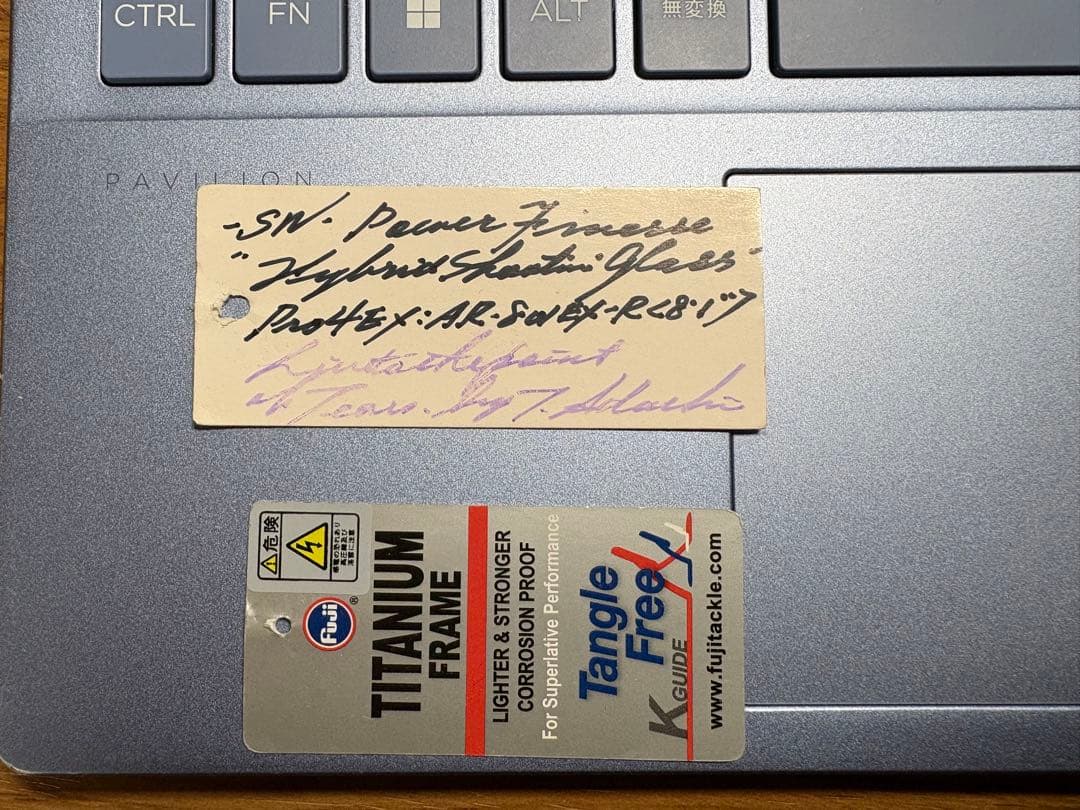 CTRL
FN
ALT
無変換
PAVILION
-SW- Power Finesse
"Hybrid Shootin' Glass"
Pro4EX: AR-801EX-R<8'1">
of Tears. by T. Adachi
危険
感電の恐れあり
高圧線及び
落雷に注意
Fuji®
TITANIUM
FRAME
LIGHTER & STRONGER
CORROSION PROOF
For Superlative Performance
Tangle
Free
K GUIDE
www.fujitackle.com